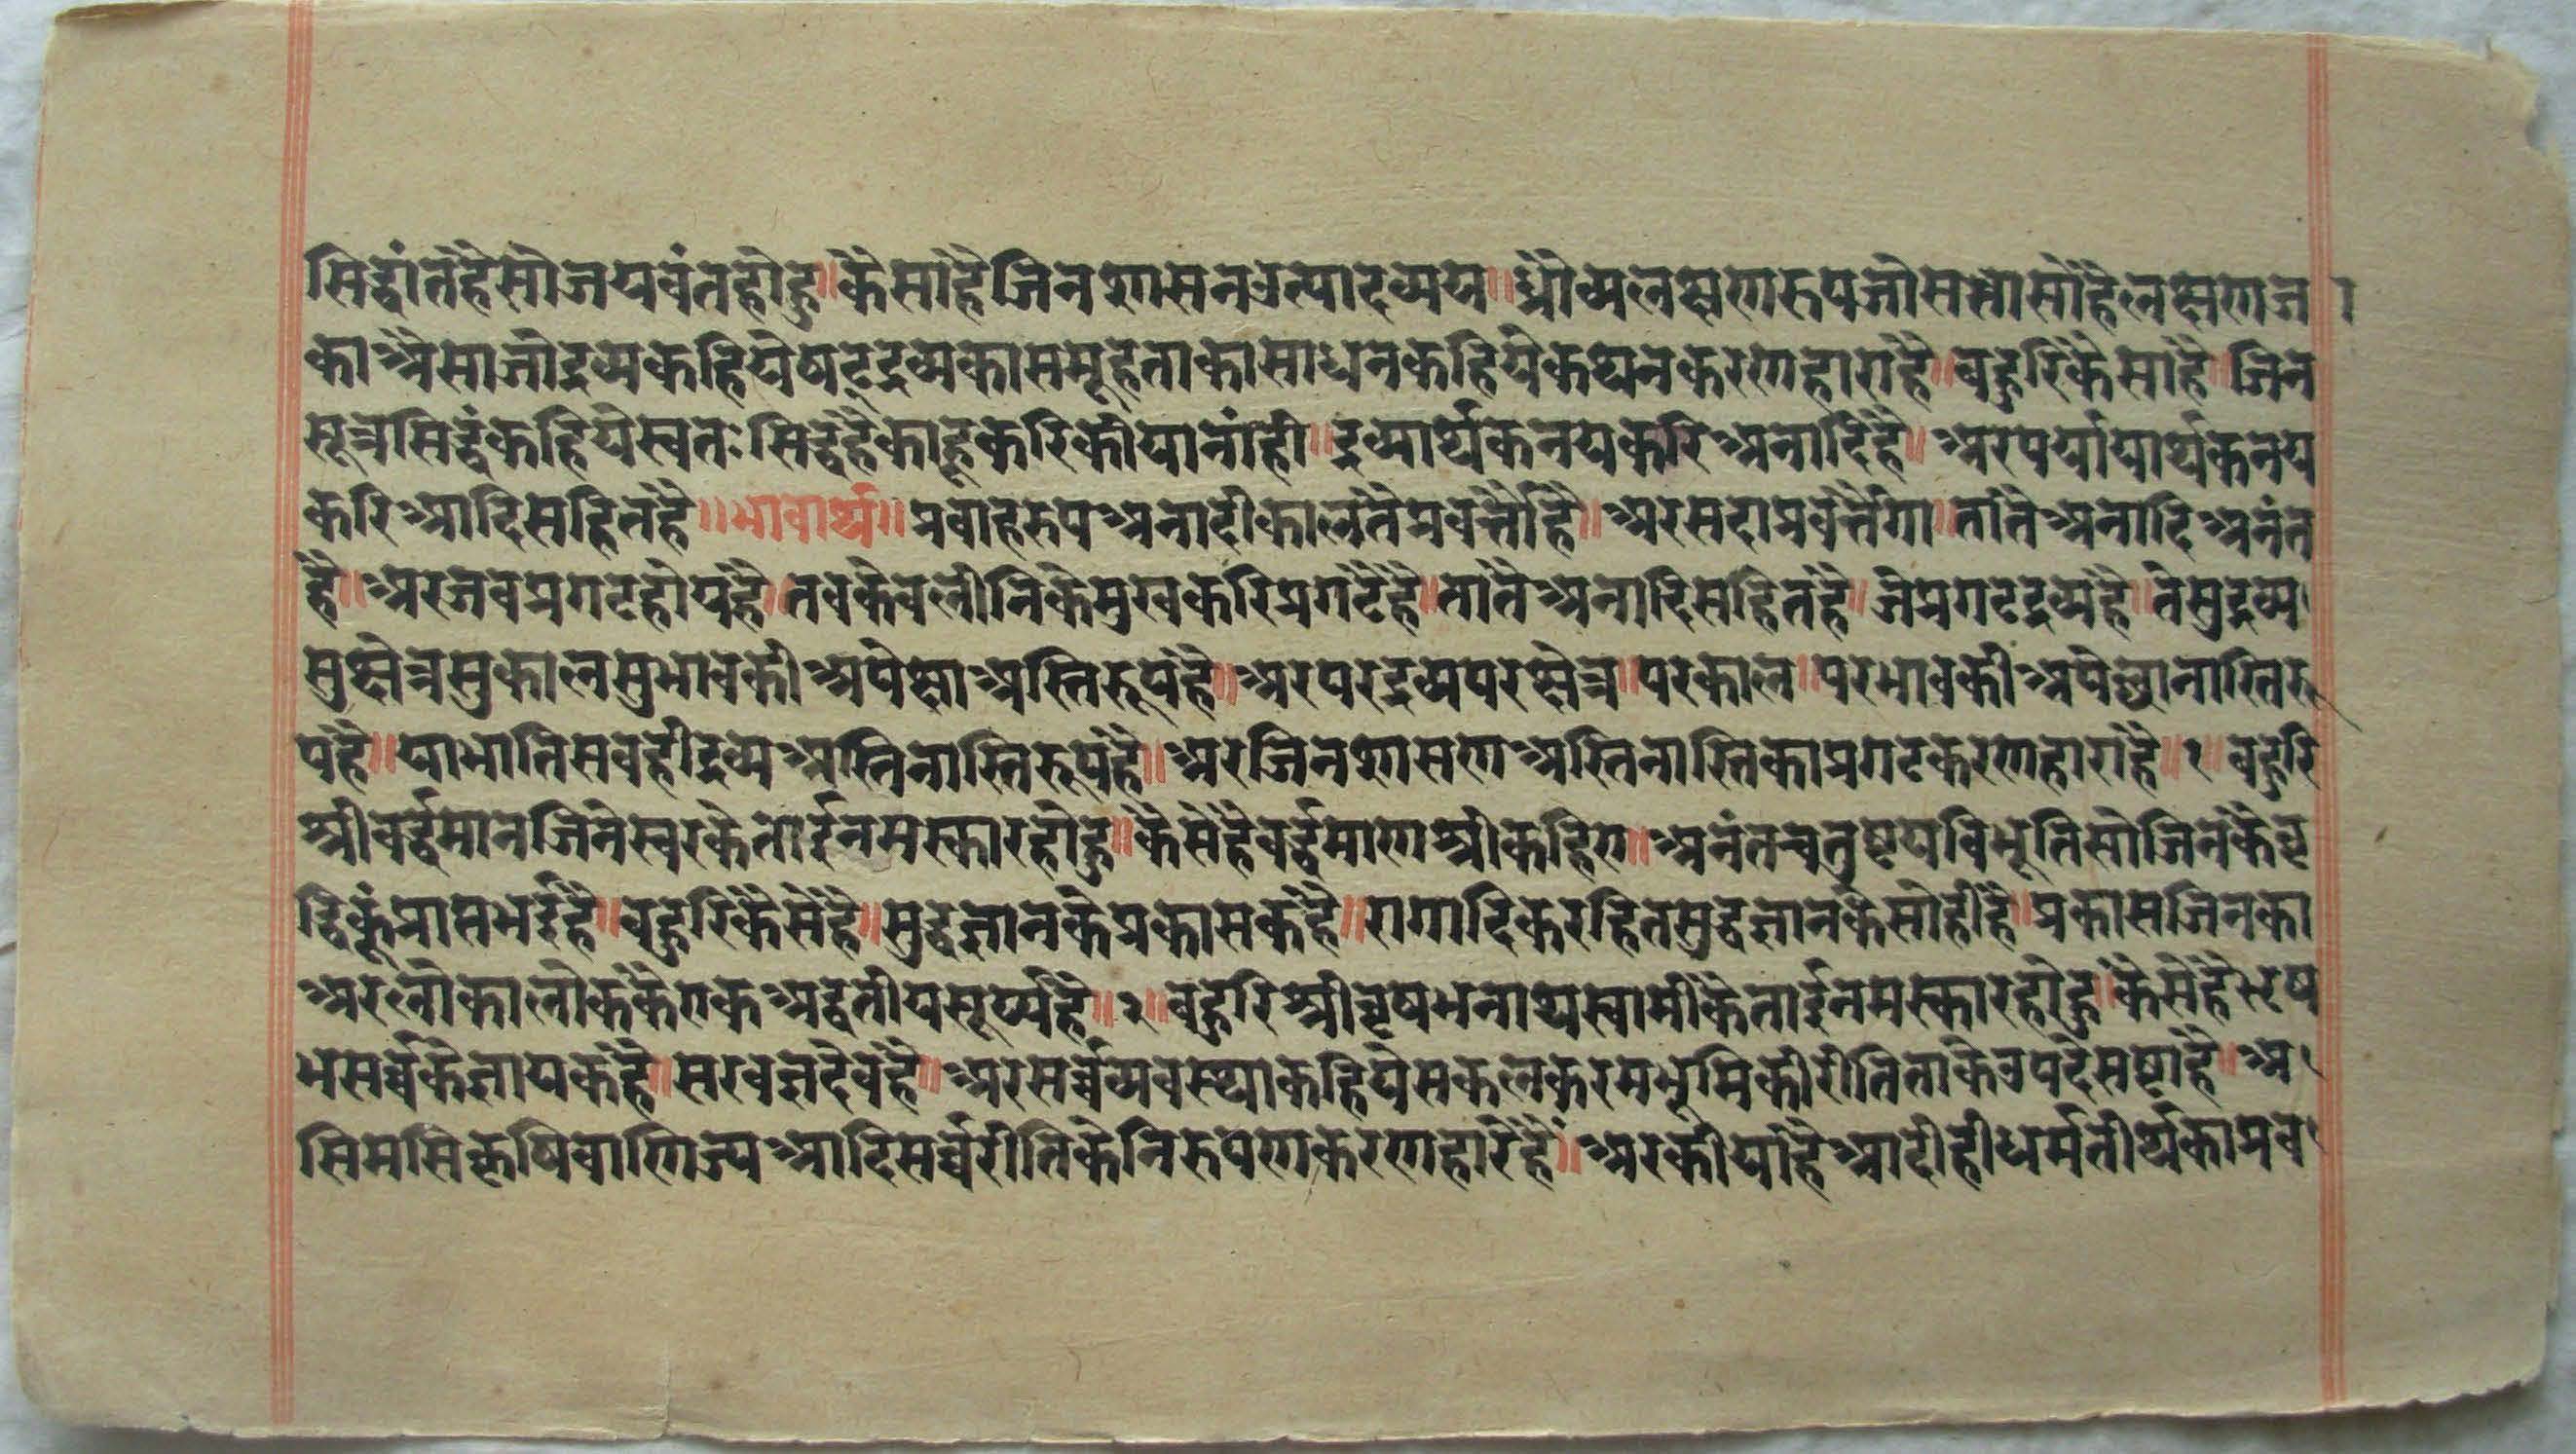 सिद्धांतहैसोजयवंतहोहु॥कैसाहैजिनशासनउत्पादव्यय॥ध्रौव्यलक्षणरूपजोसत्तासोहैलक्षणजा
काअैसाजोद्रव्यकहियेषट्द्रव्यकासमूहताकासाधनकहियेकथनकरणहाराहै॥बहुरिकैसाहै॥जिन
सूत्रसिद्धंकहियेस्वतःसिद्धहैकाहूकरिकीयानांही॥द्रव्यार्थकनयकरिअनादिहै॥अरपर्यायार्थकनय
करिआदिसहितहै॥भावार्थ॥प्रवाहरुपअनादीकालतैप्रवर्त्तैहै॥अरसदाप्रवर्त्तेगा॥तातैअनादिअनंत
है॥अरजबप्रगटहोयहै॥तबकेवलीनिकेमुखकरिप्रगटैहै॥तातैअनादिसहितहै॥जेप्रगटद्रव्यहै॥तेसुद्रव्य
सुक्षेत्रसुकालसुभावकीअपेक्षाअस्तिरूपहै॥अरपरद्रव्यपरक्षेत्र॥परकाल॥परभावकीअपेक्षानास्तिरू
पहै॥याभातिसबहीद्रव्यअस्तिनास्तिरूपहै॥अरजिनशासणअस्तिनास्तिकाप्रगटकरणहाराहै॥१॥बहुरि
श्रीवर्द्धमानजिनेस्वरकेतार्इनमस्कारहोहु॥कैसेहैवर्द्धमाणश्रीकहिए॥अनंतचतुष्टयविभूतिसोजिनकैवृ
द्धिकूंप्राप्तभईहै॥बहुरिकैसेहै॥सुद्धज्ञानकैप्रकासकहै॥रागादिकरहितसुद्धज्ञानकैसोहीहै॥प्रकासजिनका
अरलोकालोककैएकअद्वतीयसूर्य्यहै॥२॥बहुरिश्रीवृषभनाथस्वामीकैतार्इनमस्कारहोहुकैसेहैवृष
भसर्व्वकेज्ञायकहै॥सरवज्ञदेवहै॥अरसर्व्वव्यवस्थाकहियेसकलकरमभूमिकीरीतिताकेउपदेसष्टाहै॥अ
सिमसिकृषिवाणिज्यआदिसर्व्वरीतिकेनिरुपणकरणहारेहै॥अरकीयाहैआदीहीधर्मतीर्थकाप्रव